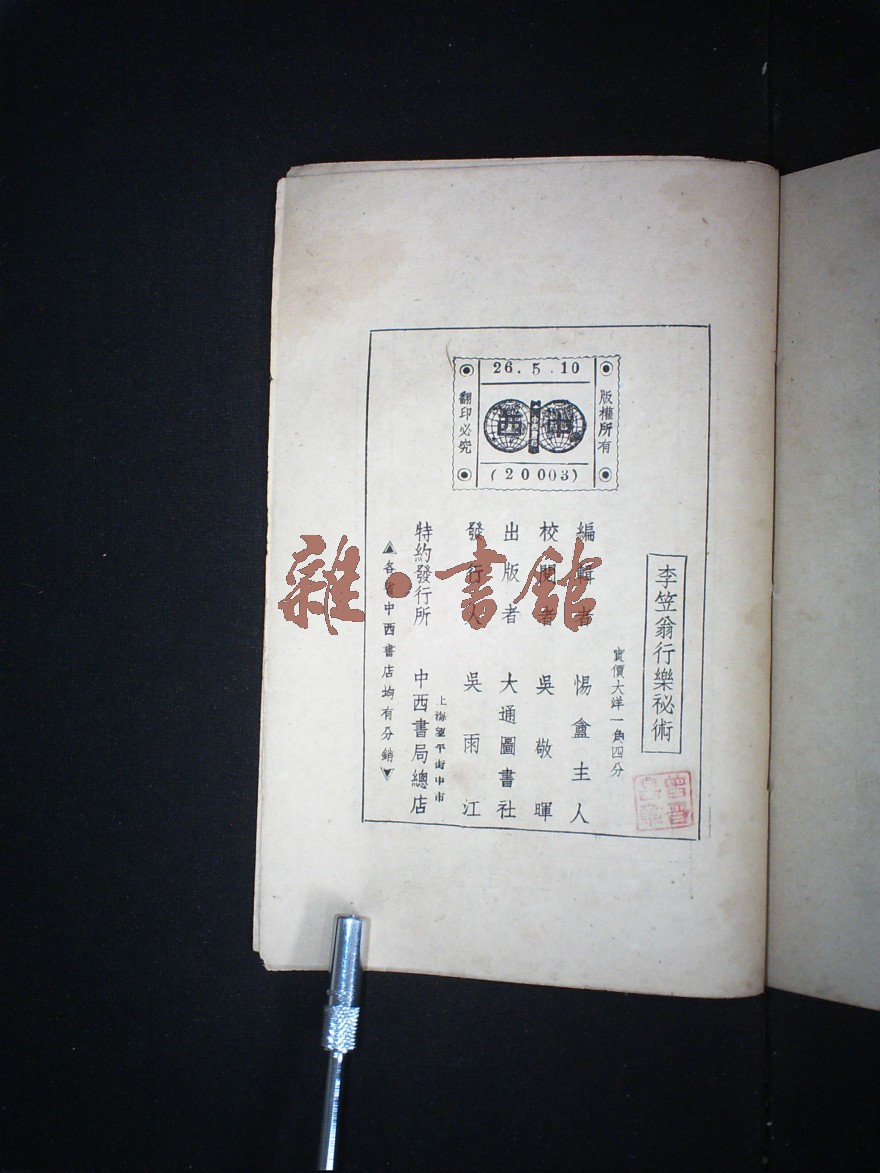 李笠翁行樂祕術
實價大洋一角四分
編輯者 惕盦主人
校閱者 吳敬暉
出版者 大通圖書社
發行人 吳雨江
特約發行所 上海望平街中市 中西書局總店
▲各省中西書店均有分銷▼
26.5.10
版權所有
中西
翻印必究
(20003)
雜·書館